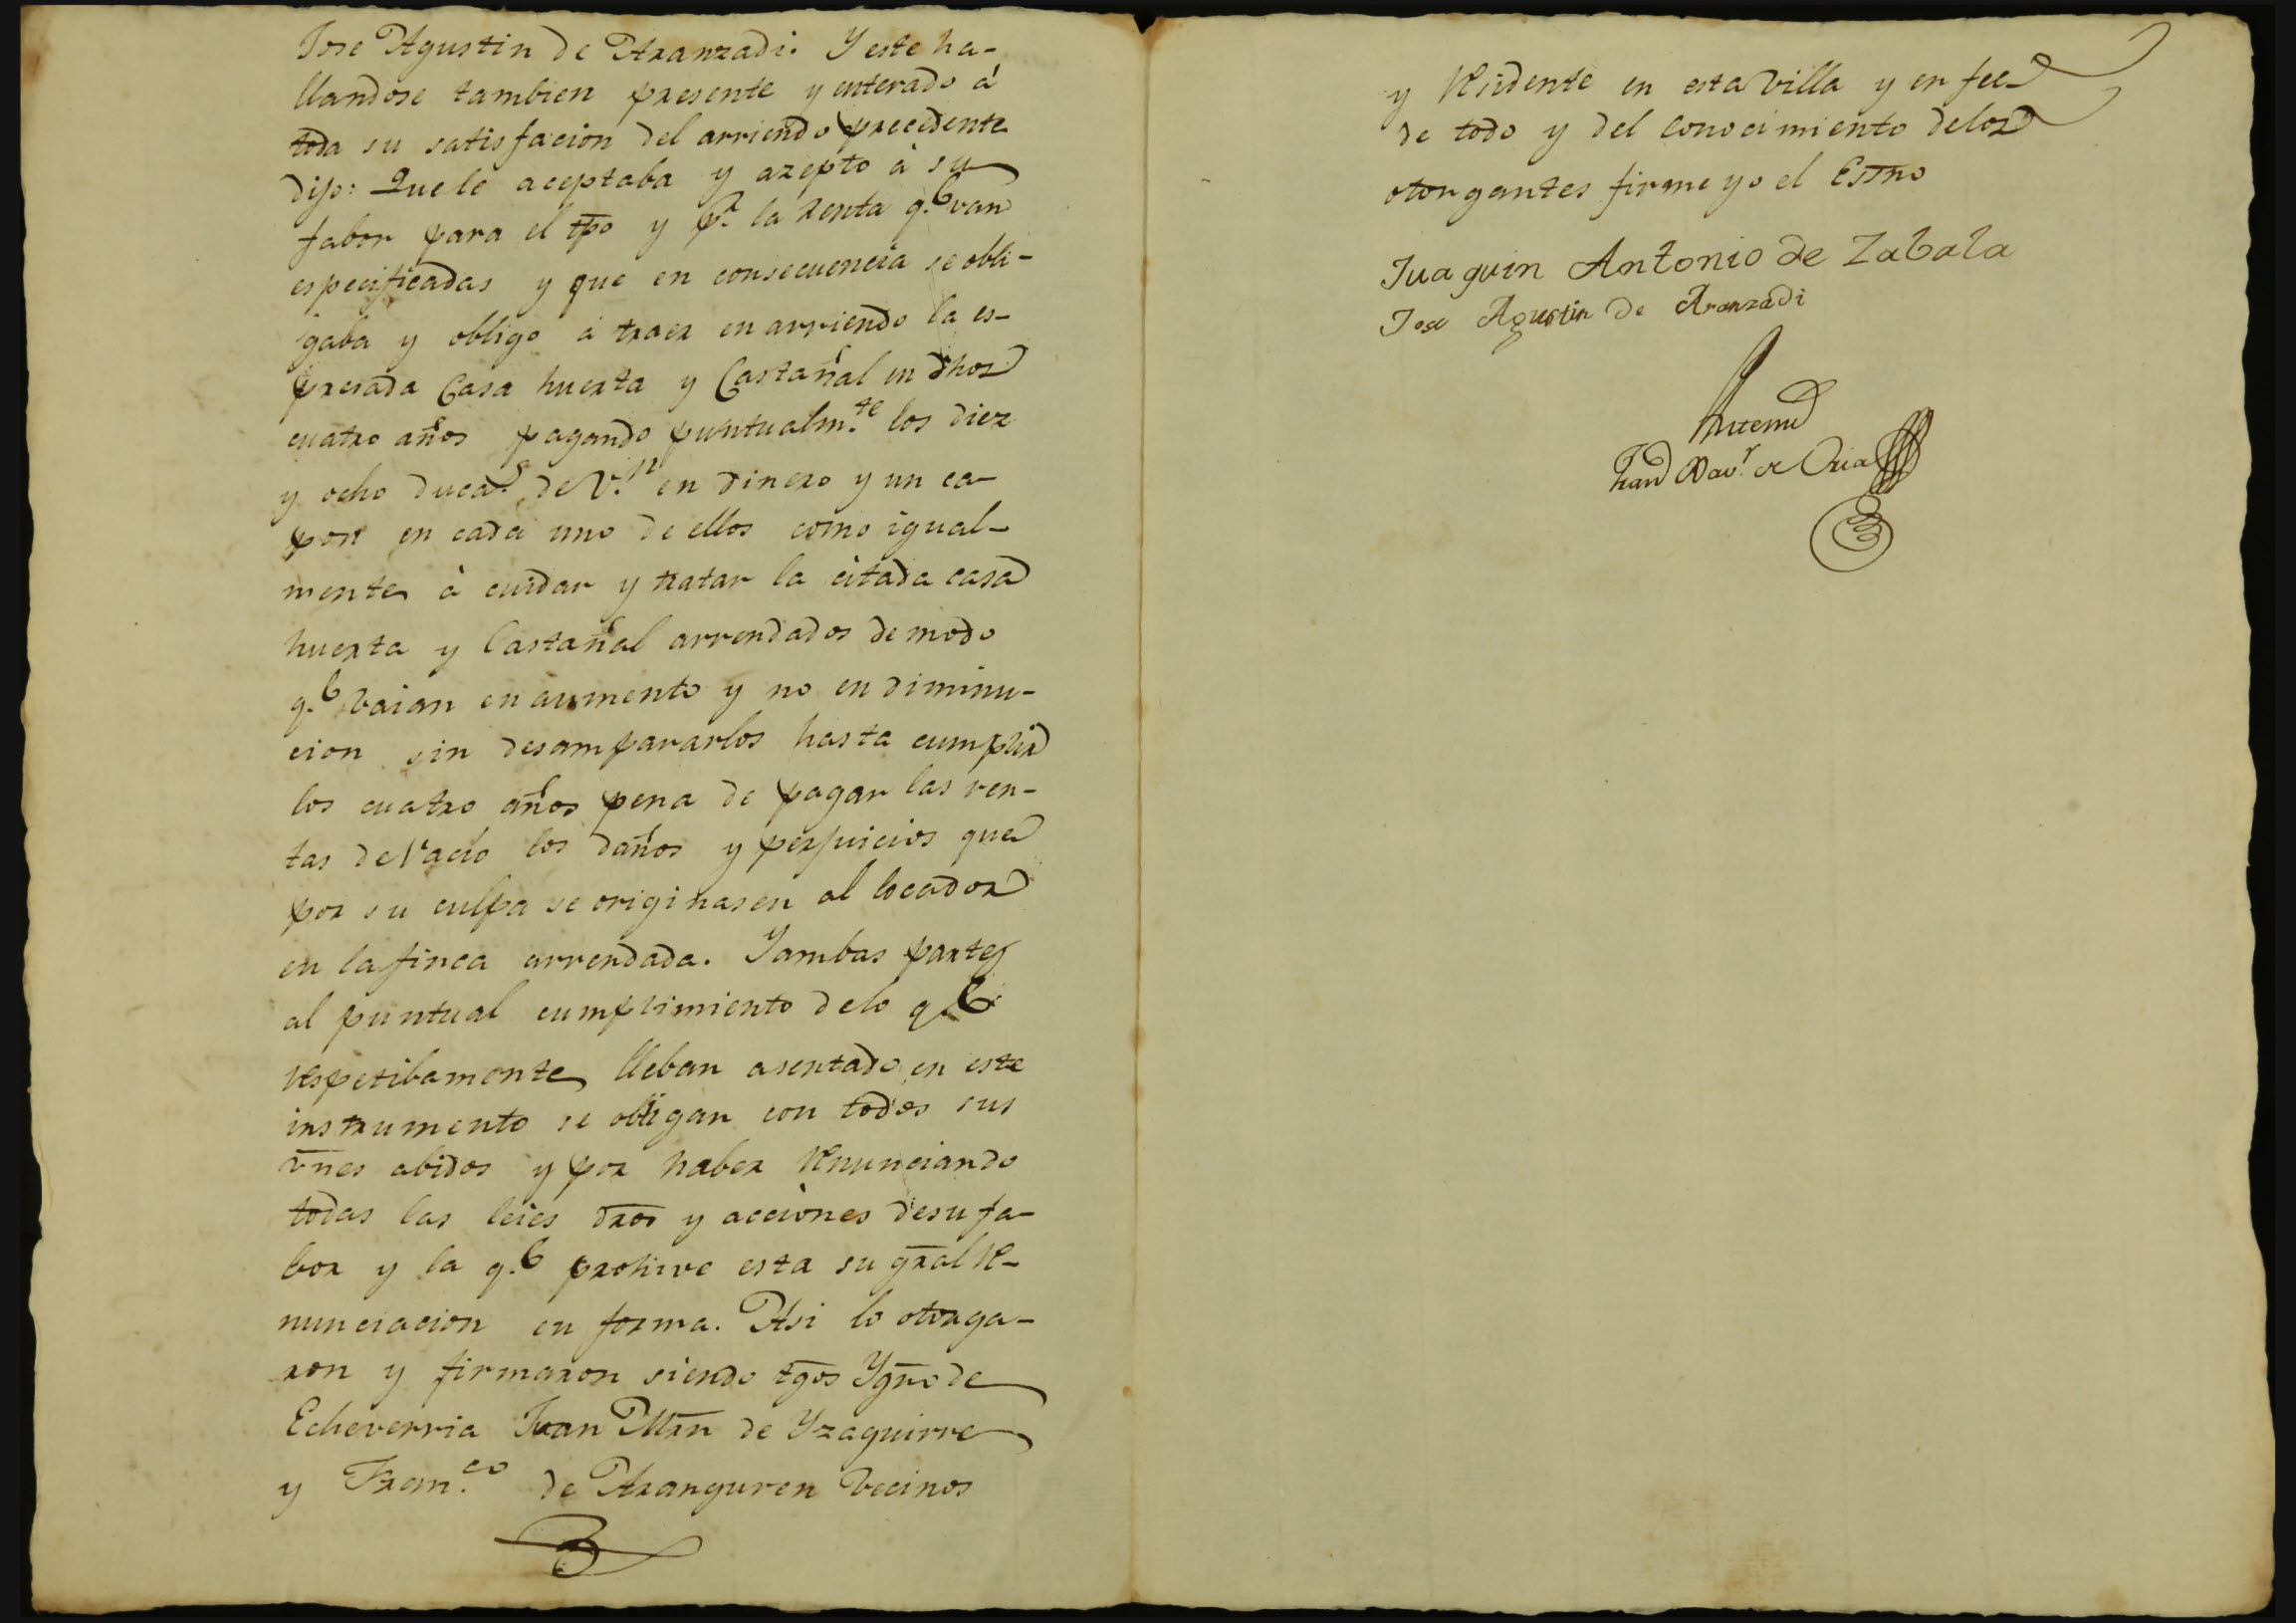 Jose Agustin de Aranzadi. Y este ha-
llandose tambien presente y enterado à
toda su satisfacion del arriendo precedente
dijo: Que le aceptaba y azepto à su
fabor para el tpo y pr. la renta q.e van
especificadas y que en consecuencia se obli-
gaba y obligo à traer en arriendo la es-
presada Casa huerta y Castañal en dhos
cuatro años pagando puntualm.te los diez
y ocho duca.s de V.n en dinero y un ca-
pon en cada uno de ellos como igual-
mente à cuidar y tratar la citada casa
huerta y Castañal arrendados de modo
q.e vaian en aumento y no en diminu-
cion sin desampararlos hasta cumplir
los cuatro años pena de pagar las ren-
tas de Vacio los daños y perjuicios que
por su culpa se originasen al locador
en la finca arrendada. Y ambas partes
al puntual cumplimiento delo q.e
respetibamente lleban asentado en este
instrumento se obligan con todos sus
vnes abidos y por haber renunciando
todas las leies dros y acciones de su fa-
bor y la q.e prohive esta su gral re-
nunciacion en forma. Asi lo otorga-
ron y firmaron siendo tgos Ygno de
Echeverria Juan Mrn de Yzaguirre
y Fran.co de Aranguren Vecinos
y residente en esta Villa y en fee
de todo y del conocimiento delos
otorgantes firme yo el Esno
Juaquin Antonio de Zabala
Jose Agustin de Aranzadi
Antemi
Fran Xav.r de Oria